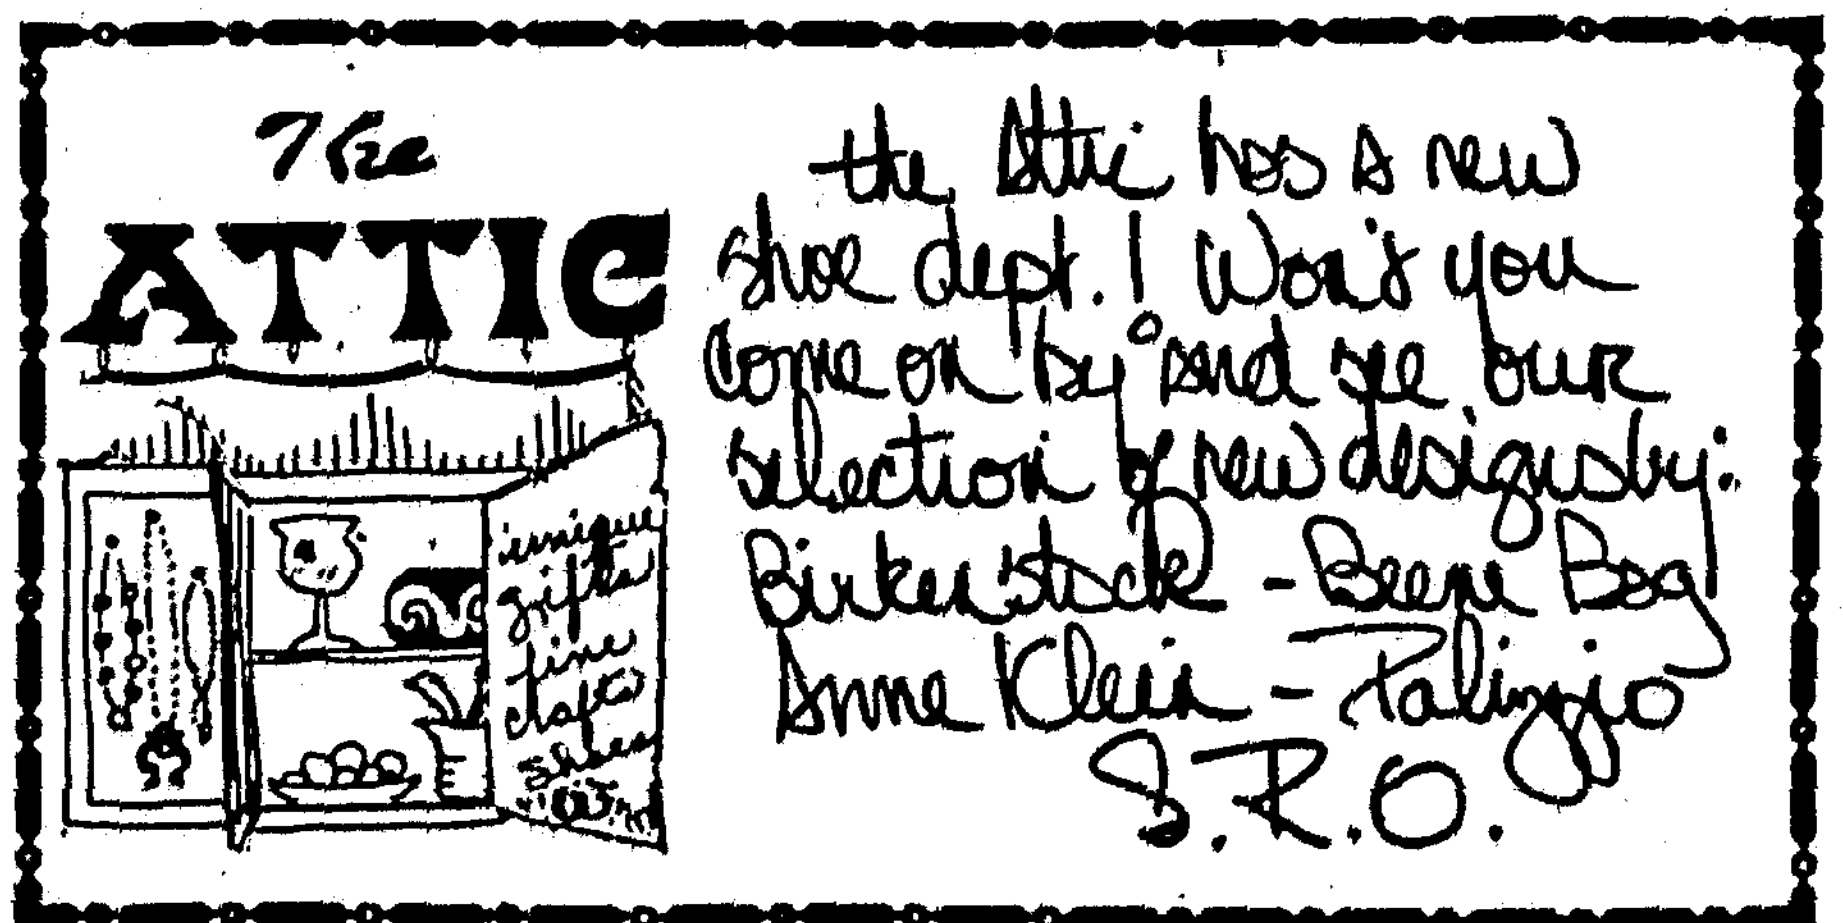 The
ATTIC
unique
gifts
fine
crafts
shoes
the Attic has a new
shoe dept.! Won't you
come on by and see our
selection of new designs by:
Birkenstock - Beene Bag
Anne Klein - Palizzio
S.R.O.